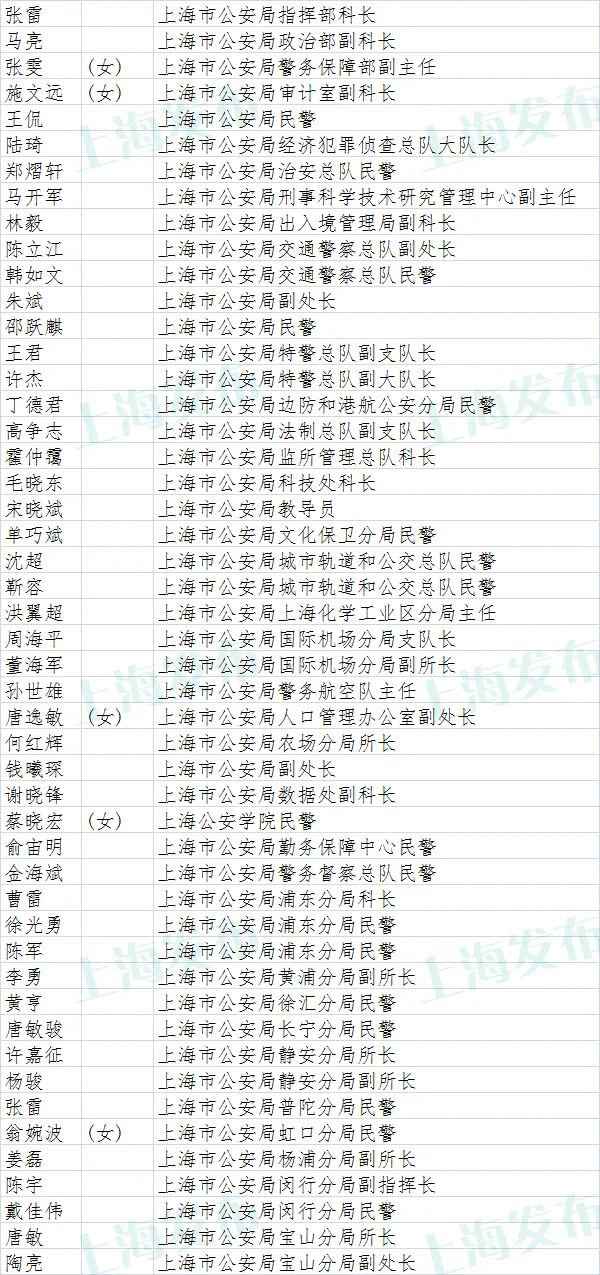 张雷 上海市公安局指挥部科长
马亮 上海市公安局政治部副科长
张雯 （女） 上海市公安局警务保障部副主任
施文远 （女） 上海市公安局审计室副科长
王侃 上海市公安局民警
陆琦 上海市公安局经济犯罪侦查总队大队长
郑熠轩 上海市公安局治安总队民警
马开军 上海市公安局刑事科学技术研究管理中心副主任
林毅 上海市公安局出入境管理局副科长
陈立江 上海市公安局交通警察总队副处长
韩如文 上海市公安局交通警察总队民警
朱斌 上海市公安局副处长
邵跃麒 上海市公安局民警
王君 上海市公安局特警总队副支队长
许杰 上海市公安局特警总队副大队长
丁德君 上海市公安局边防和港航公安分局民警
高争志 上海市公安局法制总队副支队长
霍仲霭 上海市公安局监所管理总队科长
毛晓东 上海市公安局科技处科长
宋晓斌 上海市公安局教导员
单巧斌 上海市公安局文化保卫分局民警
沈超 上海市公安局城市轨道和公交总队民警
靳容 上海市公安局城市轨道和公交总队民警
洪翼超 上海市公安局上海化学工业区分局主任
周海平 上海市公安局国际机场分局支队长
董海军 上海市公安局国际机场分局副所长
孙世雄 上海市公安局警务航空队主任
唐逸敏 （女） 上海市公安局人口管理办公室副处长
何红辉 上海市公安局农场分局所长
钱曦琛 上海市公安局副处长
谢晓锋 上海市公安局数据处副科长
蔡晓宏 （女） 上海公安学院民警
俞宙明 上海市公安局勤务保障中心民警
金海斌 上海市公安局警务督察总队民警
曹雷 上海市公安局浦东分局科长
徐光勇 上海市公安局浦东分局民警
陈军 上海市公安局浦东分局民警
李勇 上海市公安局黄浦分局副所长
黄亨 上海市公安局徐汇分局民警
唐敏骏 上海市公安局长宁分局民警
许嘉征 上海市公安局静安分局所长
杨骏 上海市公安局静安分局副所长
张雷 上海市公安局普陀分局民警
翁婉波 （女） 上海市公安局虹口分局民警
姜磊 上海市公安局杨浦分局副所长
陈宇 上海市公安局闵行分局副指挥长
戴佳伟 上海市公安局闵行分局民警
唐敏 上海市公安局宝山分局所长
陶亮 上海市公安局宝山分局副处长